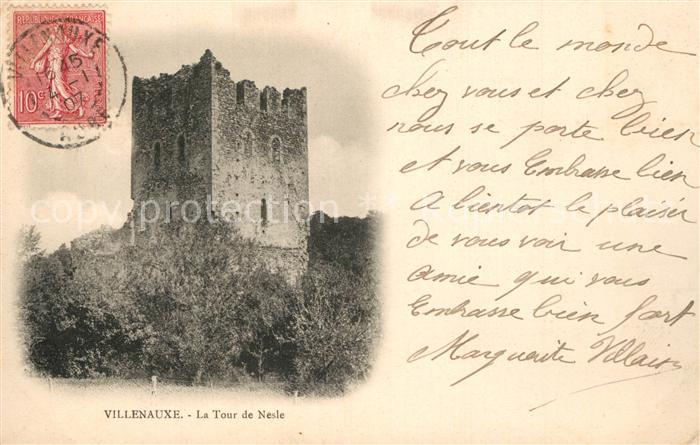 RÉPUBLIQUE FRANÇAISE
10c
VILLENAUXE
16 45
4 -1
07
AUBE
Tout le monde
chez vous et chez
nous se porte bien
et vous Embrasse bien
A bientot le plaisir
de vous voir une
amie qui vous
Embrasse bien fort
Marguerite Villain
copyright
VILLENAUXE. - La Tour de Nesle